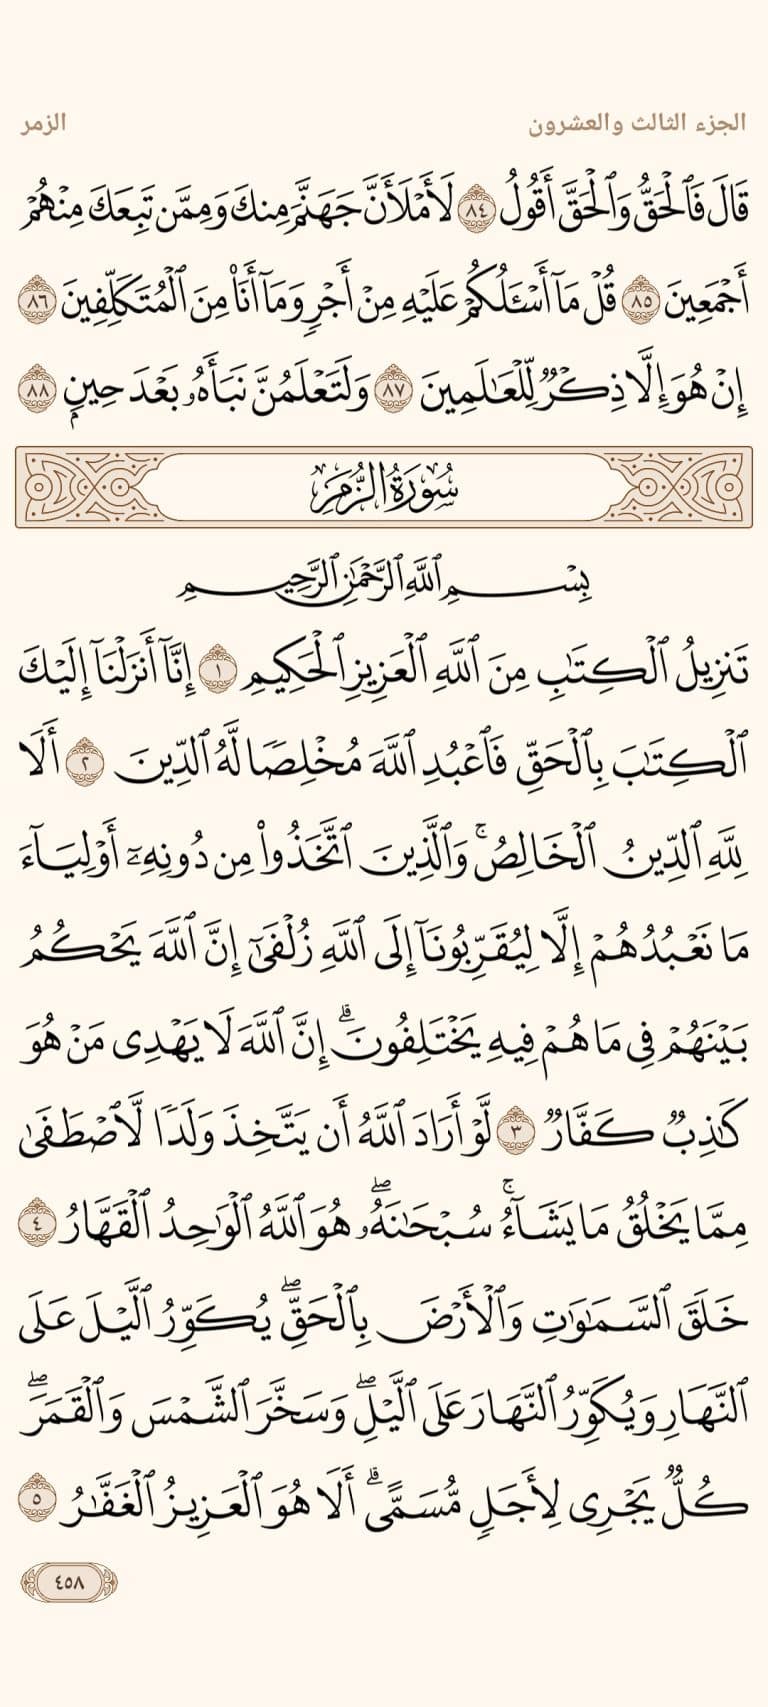 الجزء الثالث والعشرون
الزمر
قَالَ فَٱلْحَقُّ وَٱلْحَقَّ أَقُولُ ٨٤ لَأَمْلَأَنَّ جَهَنَّمَ مِنكَ وَمِمَّن تَبِعَكَ مِنْهُمْ
أَجْمَعِينَ ٨٥ قُلْ مَآ أَسْـَٔلُكُمْ عَلَيْهِ مِنْ أَجْرٍ وَمَآ أَنَا۠ مِنَ ٱلْمُتَكَلِّفِينَ ٨٦
إِنْ هُوَ إِلَّا ذِكْرٌ لِّلْعَـٰلَمِينَ ٨٧ وَلَتَعْلَمُنَّ نَبَأَهُۥ بَعْدَ حِينٍۭ ٨٨
سُورَةُ الزُّمَرِ
بِسْمِ ٱللَّهِ ٱلرَّحْمَـٰنِ ٱلرَّحِيمِ
تَنزِيلُ ٱلْكِتَـٰبِ مِنَ ٱللَّهِ ٱلْعَزِيزِ ٱلْحَكِيمِ ١ إِنَّآ أَنزَلْنَآ إِلَيْكَ
ٱلْكِتَـٰبَ بِٱلْحَقِّ فَٱعْبُدِ ٱللَّهَ مُخْلِصًا لَّهُ ٱلدِّينَ ٢ أَلَا
لِلَّهِ ٱلدِّينُ ٱلْخَالِصُ ۚ وَٱلَّذِينَ ٱتَّخَذُوا۟ مِن دُونِهِۦٓ أَوْلِيَآءَ
مَا نَعْبُدُهُمْ إِلَّا لِيُقَرِّبُونَآ إِلَى ٱللَّهِ زُلْفَىٰٓ إِنَّ ٱللَّهَ يَحْكُمُ
بَيْنَهُمْ فِى مَا هُمْ فِيهِ يَخْتَلِفُونَ ۗ إِنَّ ٱللَّهَ لَا يَهْدِى مَنْ هُوَ
كَـٰذِبٌ كَفَّارٌ ٣ لَّوْ أَرَادَ ٱللَّهُ أَن يَتَّخِذَ وَلَدًا لَّٱصْطَفَىٰ
مِمَّا يَخْلُقُ مَا يَشَآءُ ۚ سُبْحَـٰنَهُۥ ۖ هُوَ ٱللَّهُ ٱلْوَٰحِدُ ٱلْقَهَّارُ ٤
خَلَقَ ٱلسَّمَـٰوَٰتِ وَٱلْأَرْضَ بِٱلْحَقِّ ۖ يُكَوِّرُ ٱلَّيْلَ عَلَى
ٱلنَّهَارِ وَيُكَوِّرُ ٱلنَّهَارَ عَلَى ٱلَّيْلِ ۖ وَسَخَّرَ ٱلشَّمْسَ وَٱلْقَمَرَ ۖ
كُلٌّ يَجْرِى لِأَجَلٍ مُّسَمًّى ۗ أَلَا هُوَ ٱلْعَزِيزُ ٱلْغَفَّـٰرُ ٥
٤٥٨